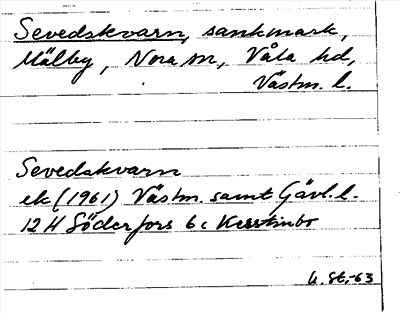 Sevedskvarn, sankmark,
Mälby, Nora sn, Våla hd,
Västm. l.
Sevedskvarn
ek (1961) Västm. samt Gävl. l.
12 H Söderfors 6 c
U. St. -63